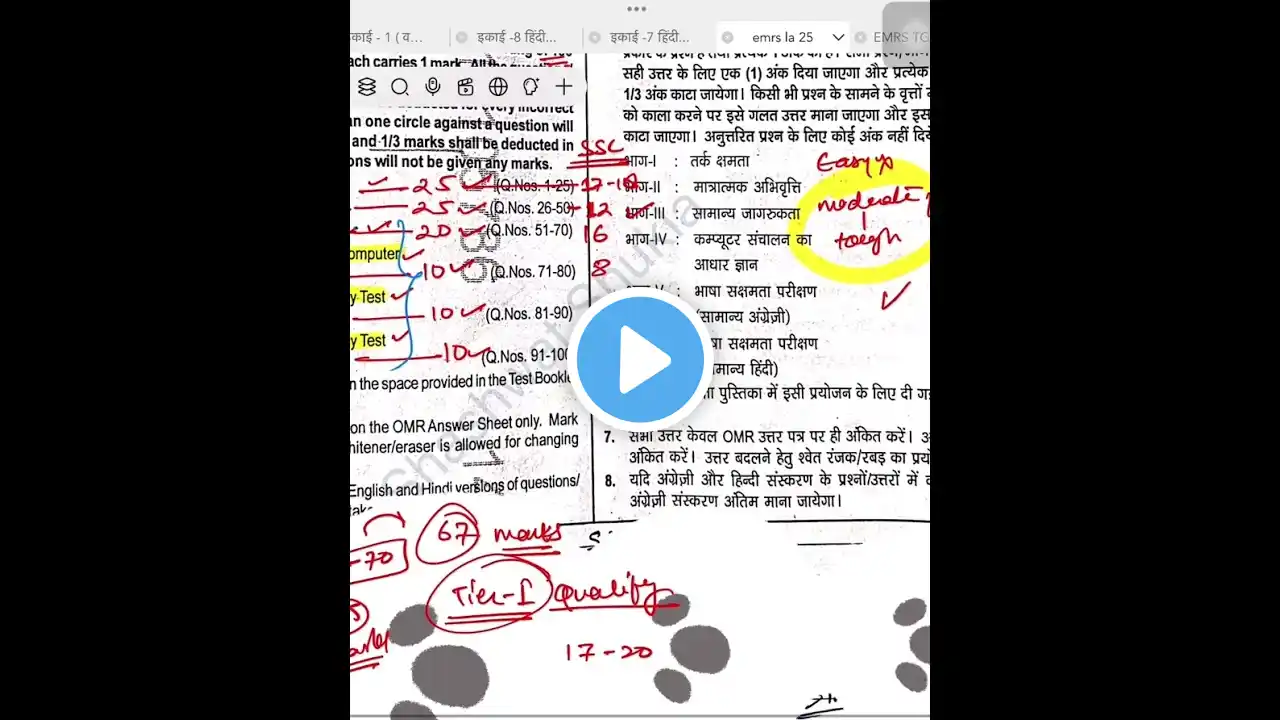 इकाई - 1 ( व... इकाई -8 हिंदी... इकाई -7 हिंदी... emrs la 25 EMRS TG
ach carries 1 mark.
an one circle against a question will
and 1/3 marks shall be deducted in
ons will not be given any marks.
25 (Q.Nos. 1-25)
25 (Q.Nos. 26-50) 12
20 (Q.Nos. 51-70) 16
omputer
10 (Q.Nos. 71-80) 8
y Test
10 (Q.Nos. 81-90)
y Test
10 (Q.Nos. 91-100
n the space provided in the Test Bookle
on the OMR Answer Sheet only. Mark
hitener/eraser is allowed for changing
English and Hindi versions of questions/
SSC
सही उत्तर के लिए एक (1) अंक दिया जाएगा और प्रत्येक
1/3 अंक काटा जायेगा। किसी भी प्रश्न के सामने के वृत्तों
को काला करने पर इसे गलत उत्तर माना जाएगा और इस
काटा जाएगा। अनुत्तरित प्रश्न के लिए कोई अंक नहीं दिय
भाग-I : तर्क क्षमता
भाग-II : मात्रात्मक अभिवृत्ति
भाग-III : सामान्य जागरुकता
भाग-IV : कम्प्यूटर संचालन का
आधार ज्ञान
भाषा सक्षमता परीक्षण
(सामान्य अंग्रेज़ी)
सक्षमता परीक्षण
मान्य हिंदी)
पुस्तिका में इसी प्रयोजन के लिए दी गई
7. सभी उत्तर केवल OMR उत्तर पत्र पर ही अंकित करें।
अंकित करें। उत्तर बदलने हेतु श्वेत रंजक/रबड़ का प्रयो
8. यदि अंग्रेज़ी और हिन्दी संस्करण के प्रश्नों/उत्तरों में
अंग्रेज़ी संस्करण अंतिम माना जायेगा।
Easy
moderate
tough
-70 67 marks
Tier-I Qualify
17-20
Shashwat Shukla